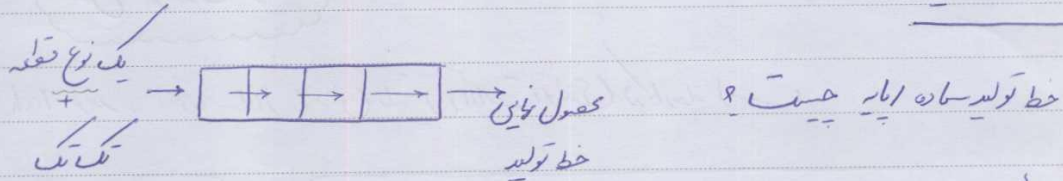 خط تولید ساده / پایه چیست ؟
یک نوع قطعه
+
تک تک
محصول نهایی
خط تولید